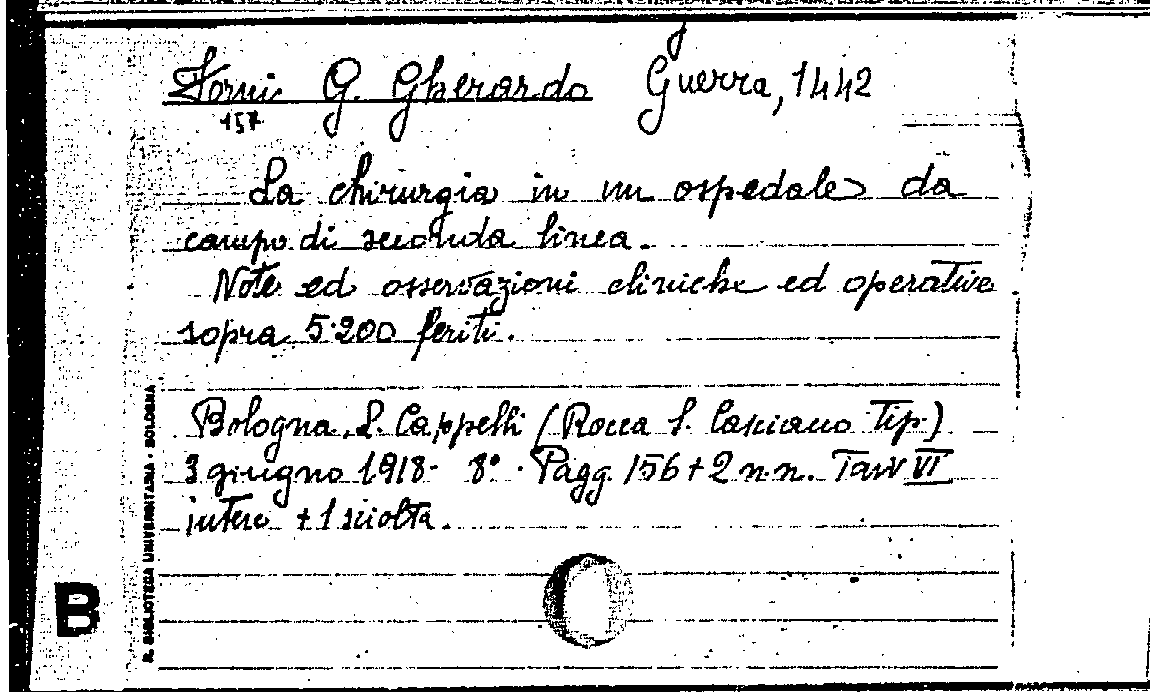 Forni G. Gherardo Guerra, 1442
157
La chirurgia in un ospedale da
campo di seconda linea.
Note ed osservazioni cliniche ed operative
sopra 5.200 feriti.
Bologna, L. Cappelli (Rocca S. Casciano Tip.)
3 giugno 1918 - 8° - Pagg. 156 + 2 n.n. Tavv VI
intero + 1 sciolta.
R. BIBLIOTECA UNIVERSITARIA • BOLOGNA
B